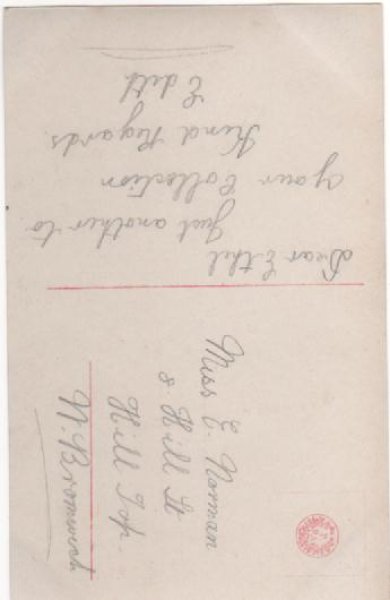 Dear Ethel
Just another to
your Collection
Kind Regards.
Edith
Miss E. Norman
8 Hill St
Hill Top.
W. Bromwich